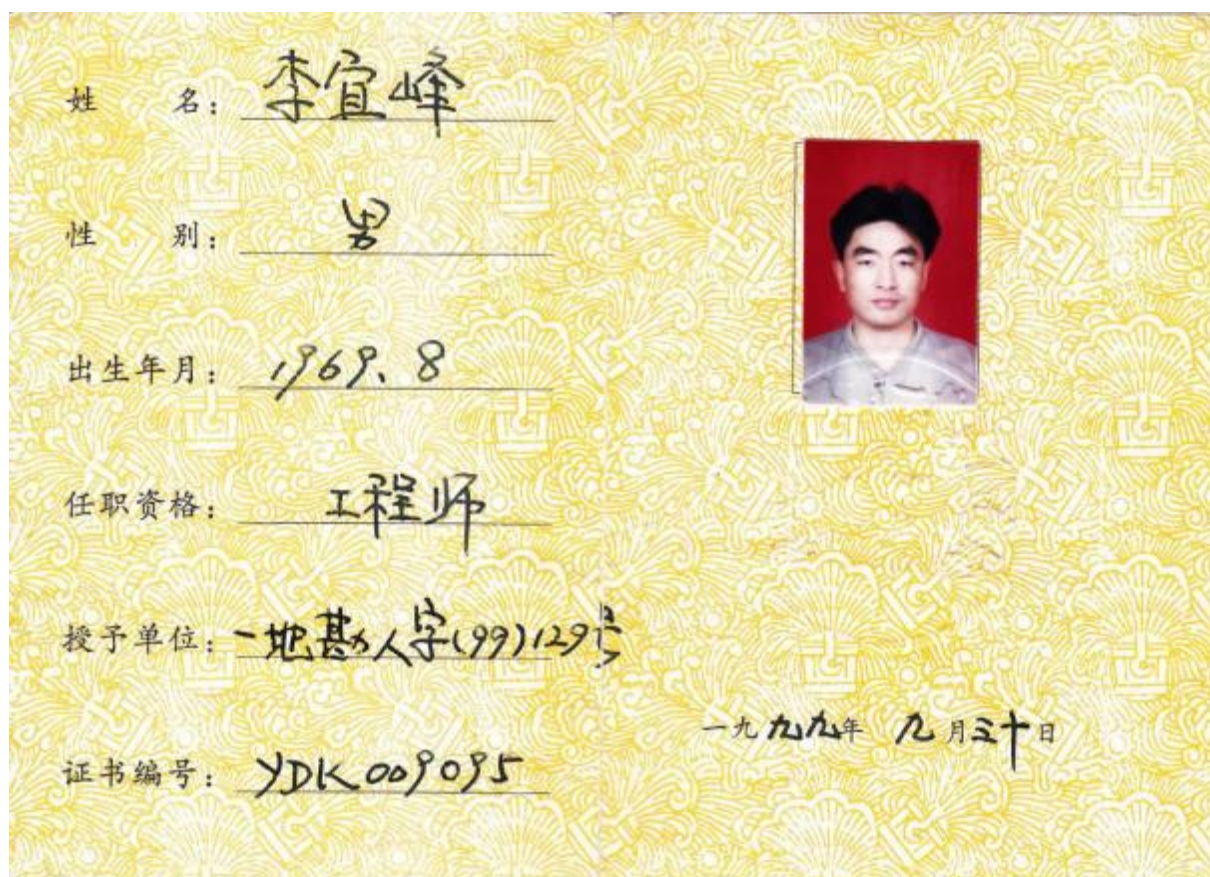 姓 名: 李宜峰
性 别: 男
出生年月: 1969、8
任职资格: 工程师
授予单位: 一地勘人字(99)129号
证书编号: YDK009095
一九九九年 九月三十日